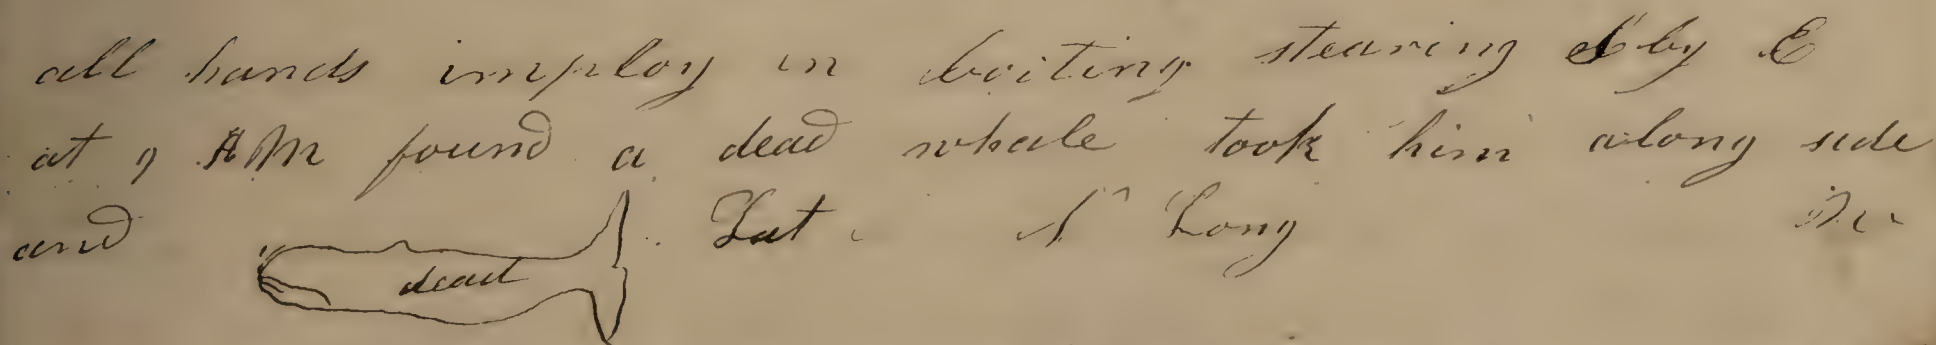 all hands imploy in boiting stearing S by E
at 9 AM found a dead whale took him along side
and dead Lat Long